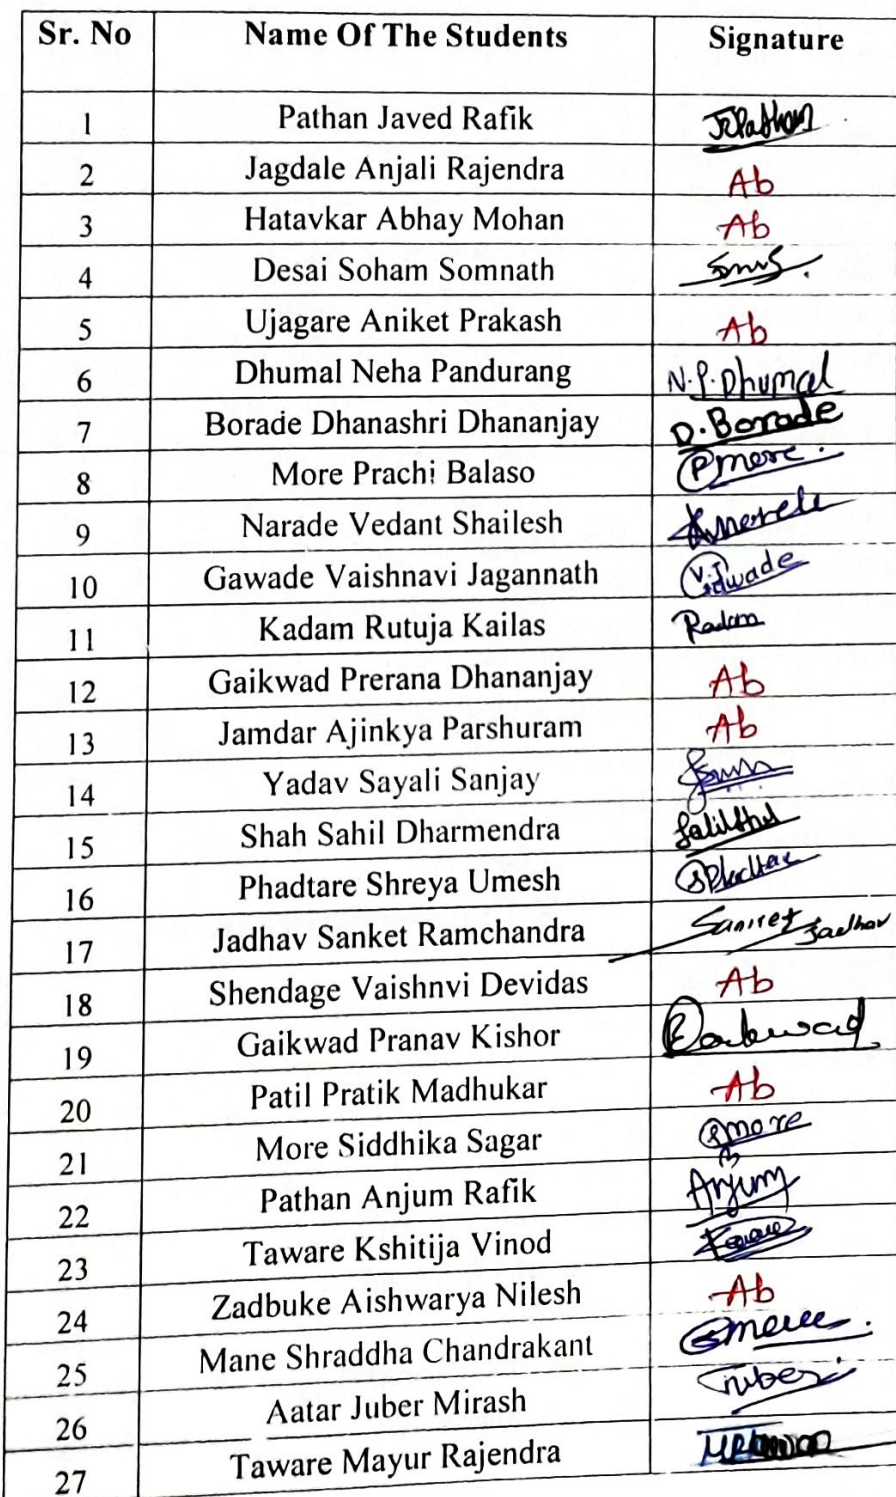 Sr. No Name Of The Students Signature
1 Pathan Javed Rafik JRPathan
2 Jagdale Anjali Rajendra Ab
3 Hatavkar Abhay Mohan Ab
4 Desai Soham Somnath
5 Ujagare Aniket Prakash Ab
6 Dhumal Neha Pandurang N.P.Dhumal
7 Borade Dhanashri Dhananjay D.Borade
8 More Prachi Balaso Pmore.
9 Narade Vedant Shailesh
10 Gawade Vaishnavi Jagannath
11 Kadam Rutuja Kailas
12 Gaikwad Prerana Dhananjay Ab
13 Jamdar Ajinkya Parshuram Ab
14 Yadav Sayali Sanjay
15 Shah Sahil Dharmendra
16 Phadtare Shreya Umesh
17 Jadhav Sanket Ramchandra Sanket Jadhav
18 Shendage Vaishnvi Devidas Ab
19 Gaikwad Pranav Kishor
20 Patil Pratik Madhukar Ab
21 More Siddhika Sagar Smore
22 Pathan Anjum Rafik Anjum
23 Taware Kshitija Vinod
24 Zadbuke Aishwarya Nilesh Ab
25 Mane Shraddha Chandrakant
26 Aatar Juber Mirash Juber
27 Taware Mayur Rajendra